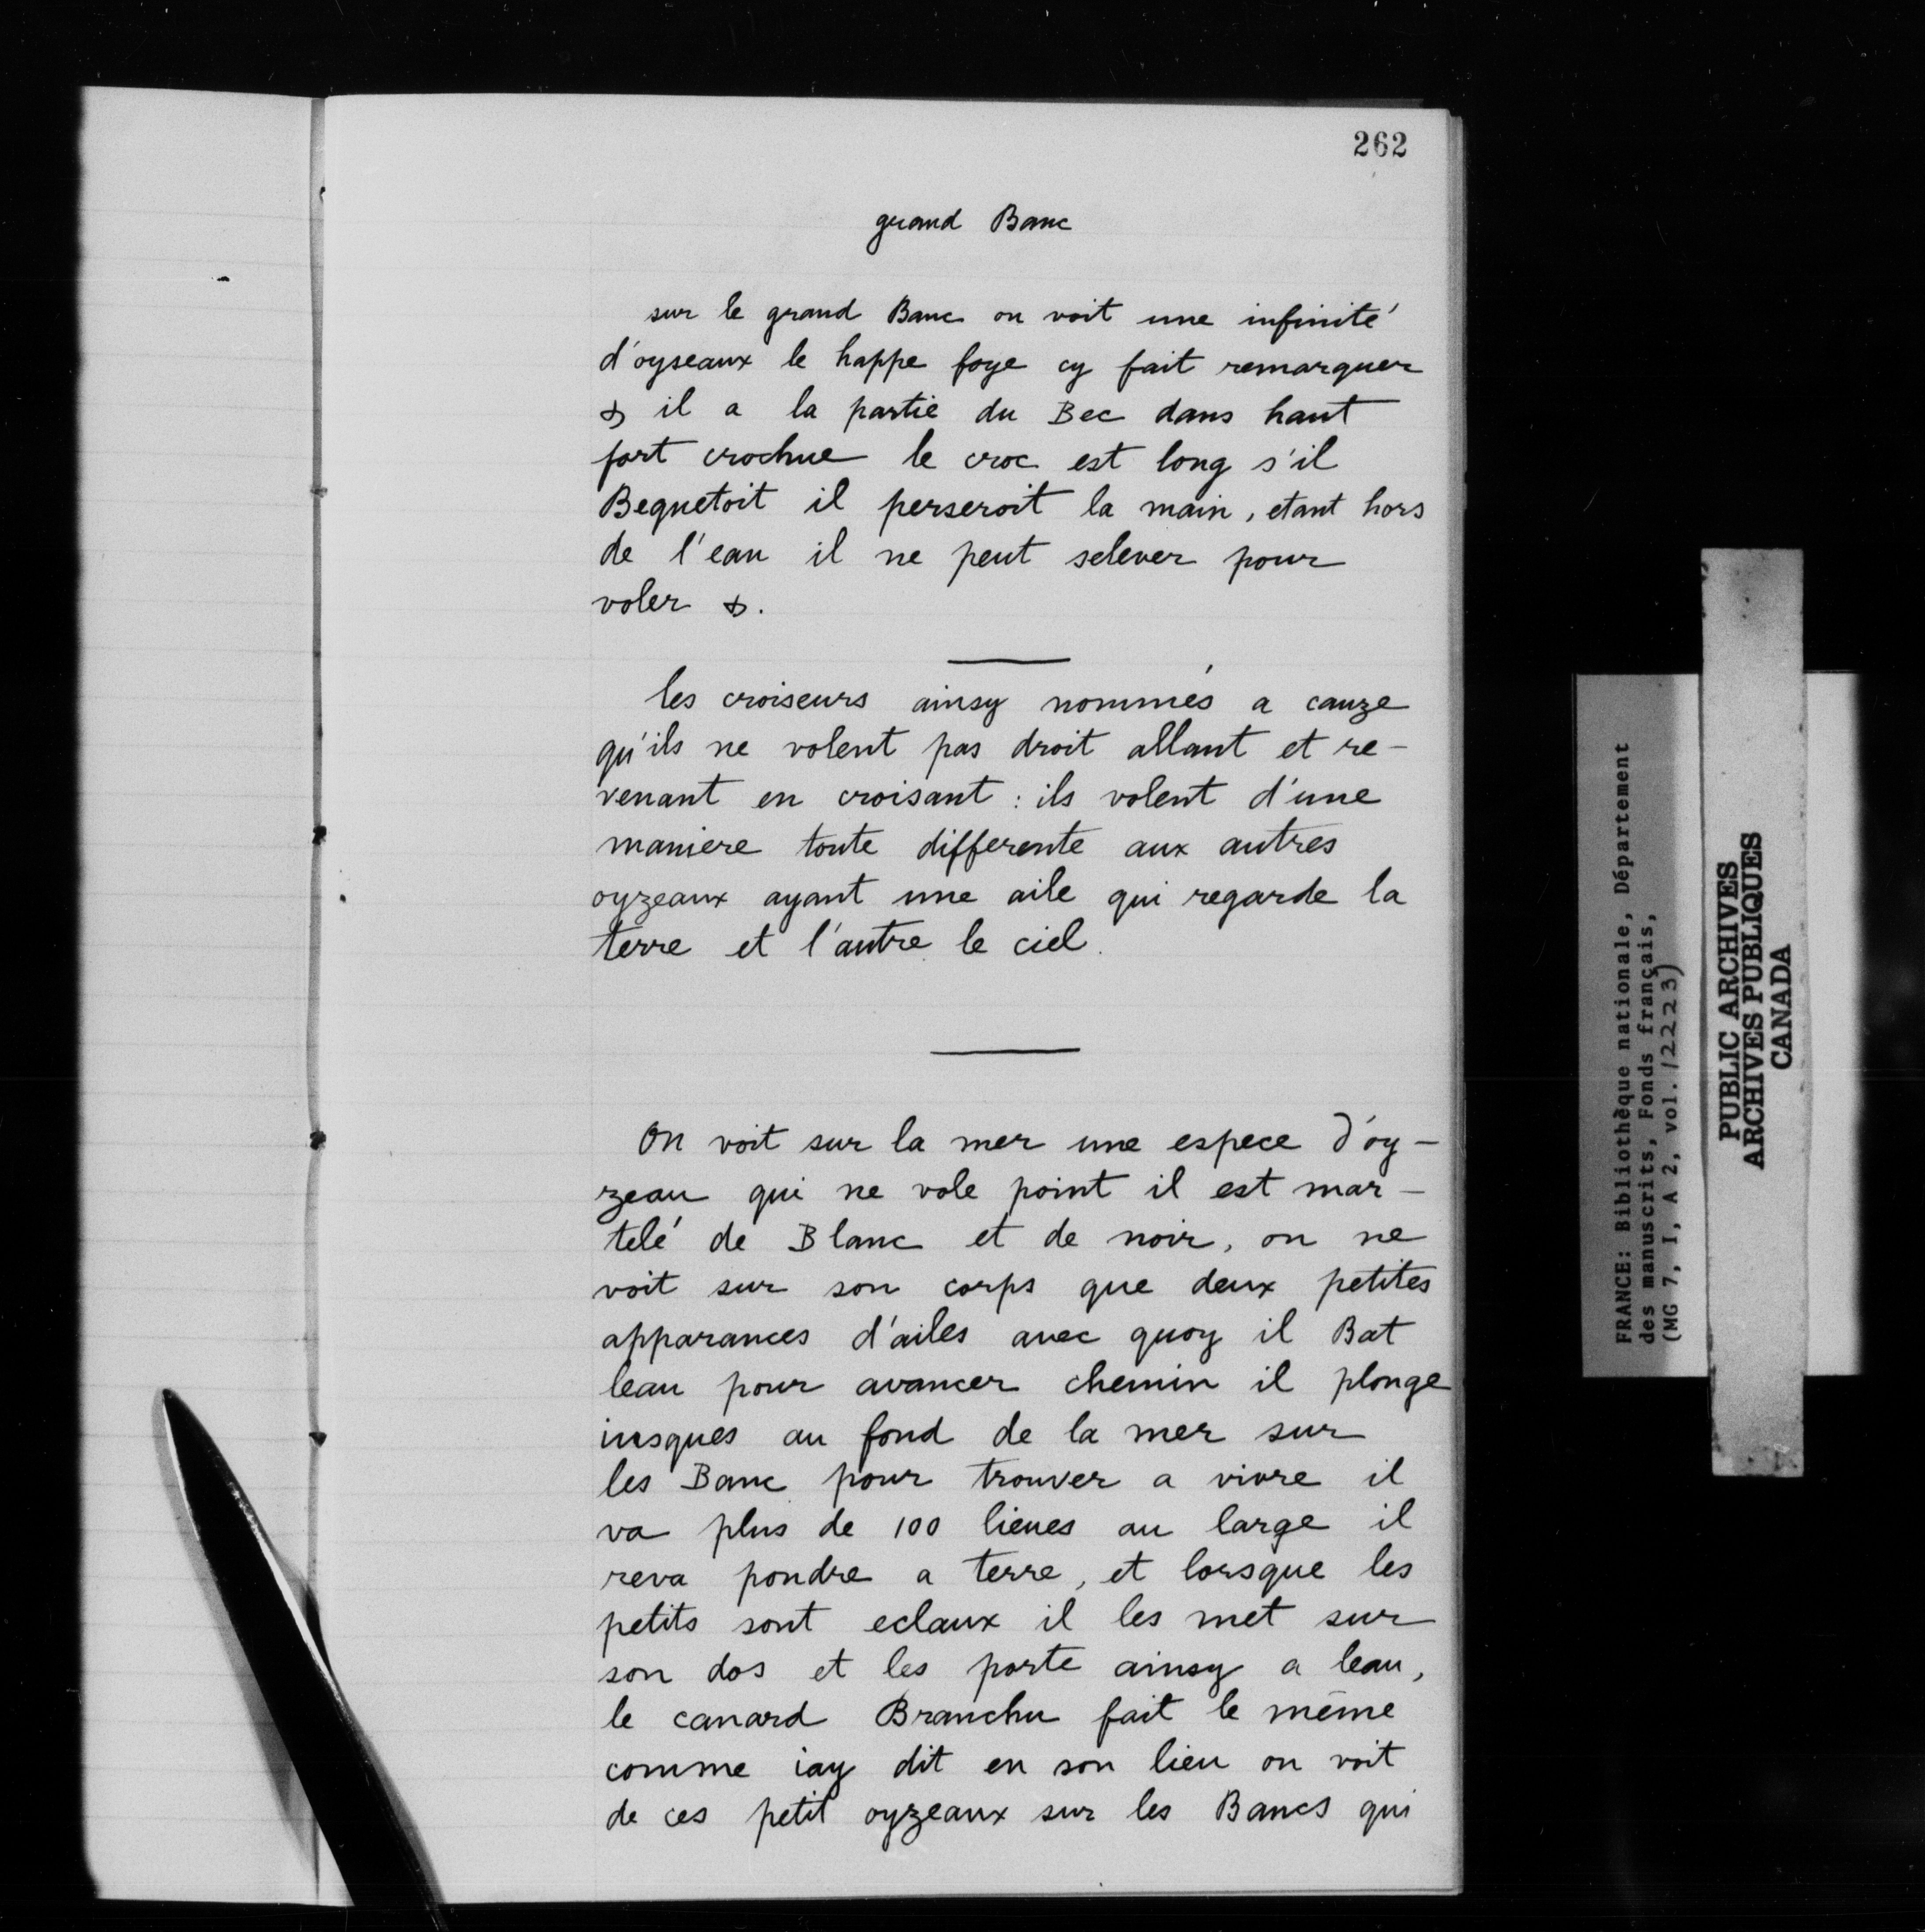 262
grand Banc
sur le grand Banc on voit une infinité
d'oyseaux le happe foye cy fait remarquer
& il a la partie du Bec dans haut
fort crochue le croc est long s'il
Bequetoit il perseroit la main, etant hors
de l'eau il ne peut selever pour
voler &.
les croiseurs ainsy nommés a cauze
qu'ils ne volent pas droit allant et re-
venant en croisant : ils volent d'une
maniere toute differente aux autres
oyzeaux ayant une aile qui regarde la
terre et l'autre le ciel.
On voit sur la mer une espece d'oy-
zeau qui ne vole point il est mar-
telé de Blanc et de noir, on ne
voit sur son corps que deux petites
apparances d'ailes avec quoy il Bat
leau pour avancer chemin il plonge
iusques au fond de la mer sur
les Banc pour trouver a vivre il
va plus de 100 lieues au large il
reva pondre a terre, et lorsque les
petits sont eclaux il les met sur
son dos et les porte ainsy a leau,
le canard Branchu fait le même
comme iay dit en son lieu on voit
de ces petit oyzeaux sur les Bancs qui
FRANCE: Bibliothèque nationale, Département
des manuscrits, Fonds français,
(MG 7, I, A 2, vol. 12223)
PUBLIC ARCHIVES
ARCHIVES PUBLIQUES
CANADA